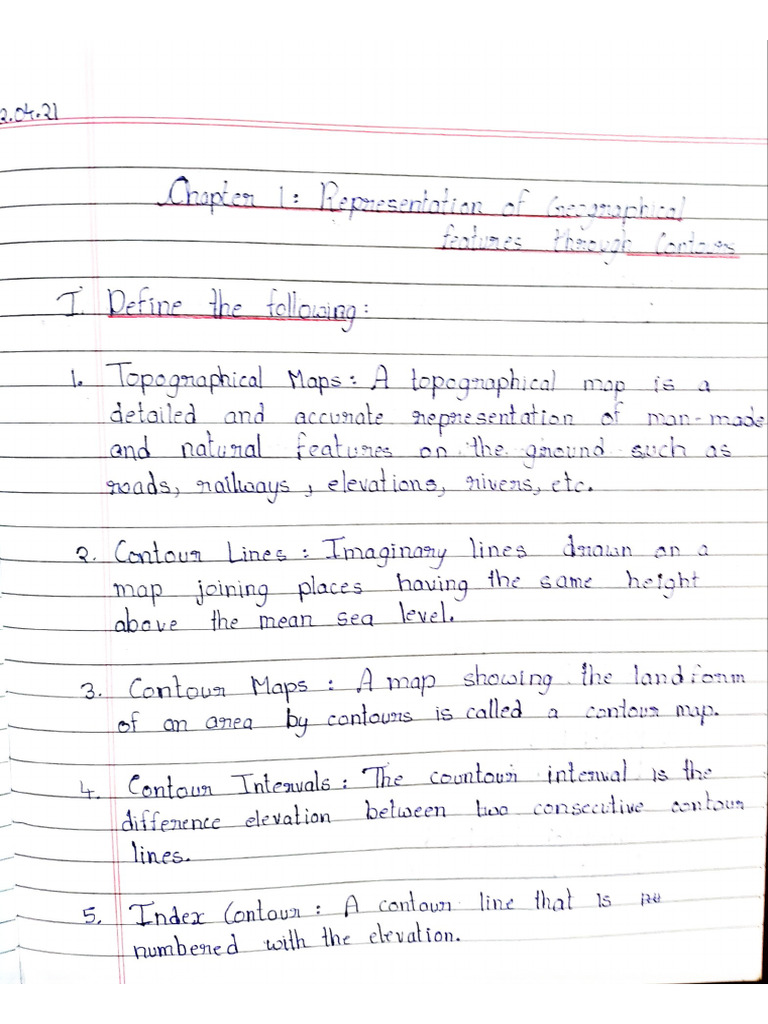 2.04.21
Chapter 1: Representation of Geographical
features through Contours
I. Define the following:
1. Topographical Maps: A topographical map is a
detailed and accurate representation of man-made
and natural features on the ground such as
roads, railways, elevations, rivers, etc.
2. Contour Lines: Imaginary lines drawn on a
map joining places having the same height
above the mean sea level.
3. Contour Maps: A map showing the landform
of an area by contours is called a contour map.
4. Contour Intervals: The countour interval is the
difference elevation between two consecutive contour
lines.
5. Index Contour: A contour line that is
numbered with the elevation.